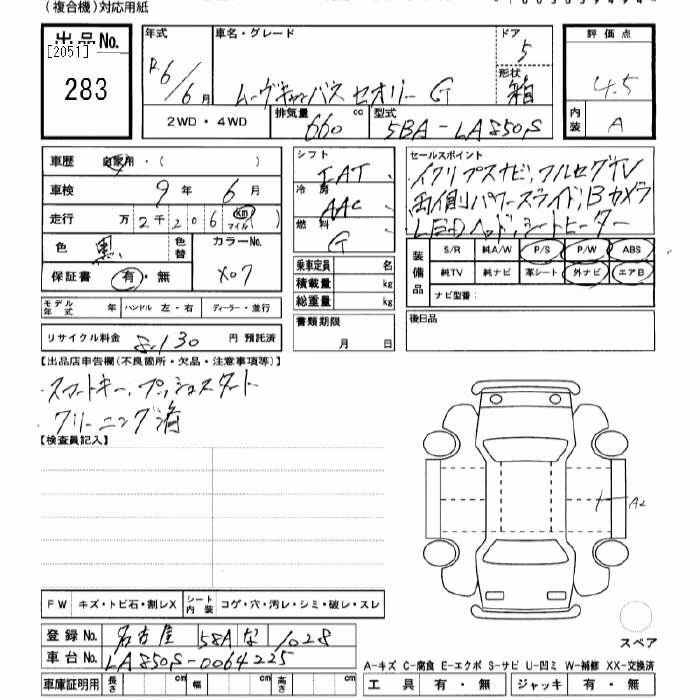 (複合機)対応用紙
出品No. 年式 車名・グレード ドア 評価点
[2051] R6/6月 ムーヴキャンバス セオリー G 5 4.5
283 形状 箱
2WD・4WD 排気量 660 cc 型式 5BA-LA850S 内装 A
車歴 自家用・( ) シフト IAT セールスポイント
車検 9年 6月 冷房 AAC イクリプスナビ,フルセグTV
走行 万2千206 km マイル 燃料 G 両側パワースライド,Bカメラ
LEDヘッド,シートヒーター
色 黒 色替 カラーNo. X07
保証書 有・無
乗車定員 名 装備品 S/R 純A/W P/S P/W ABS
積載量 kg 純TV 純ナビ 革シート 外ナビ エアB
総重量 kg ナビ型番:
モデル年式 年 ハンドル 左・右 ディーラー・並行
書類期限 月 日 後日品
リサイクル料金 8,130 円 預託済
【出品店申告欄(不良箇所・欠品・注意事項等)】
・スマートキー,プッシュスタート
・クリーニング済
【検査員記入】
A2
FW キズ・トビ石・割レX シート内装 コゲ・穴・汚レ・シミ・破レ・スレ
登録No. 名古屋 581 な 1028
スペア
車台No. LA850S-0064225
A-キズ C-腐食 E-エクボ S-サビ U-凹ミ W-補修 XX-交換済
車庫証明用 長さ cm 幅 cm 高さ cm 工具 有・無 ジャッキ 有・無